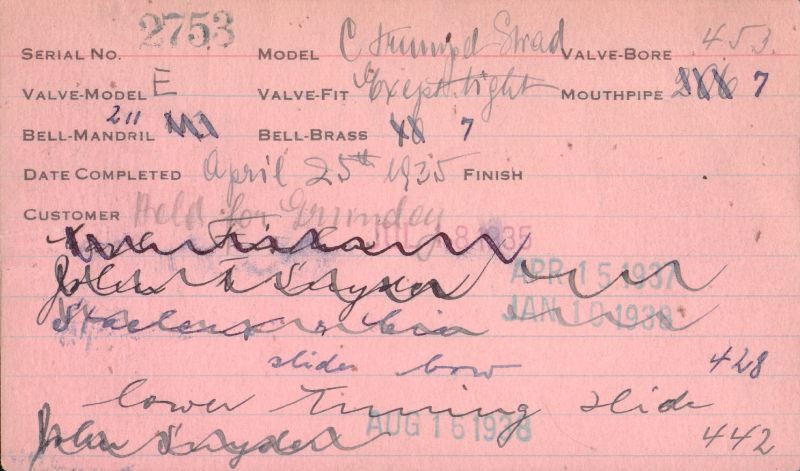 SERIAL NO. 2753 MODEL C Trumpet Strad VALVE-BORE .453
VALVE-MODEL E VALVE-FIT Exept. tight MOUTHPIPE 7
BELL-MANDRIL 211 BELL-BRASS 7
DATE COMPLETED April 25th 1935 FINISH
CUSTOMER Held for JUL 8 1935
John Snyder APR 15 1937
JAN 10 1938
slides bow 428
lower Tuning slide
John Snyder AUG 16 1938 442